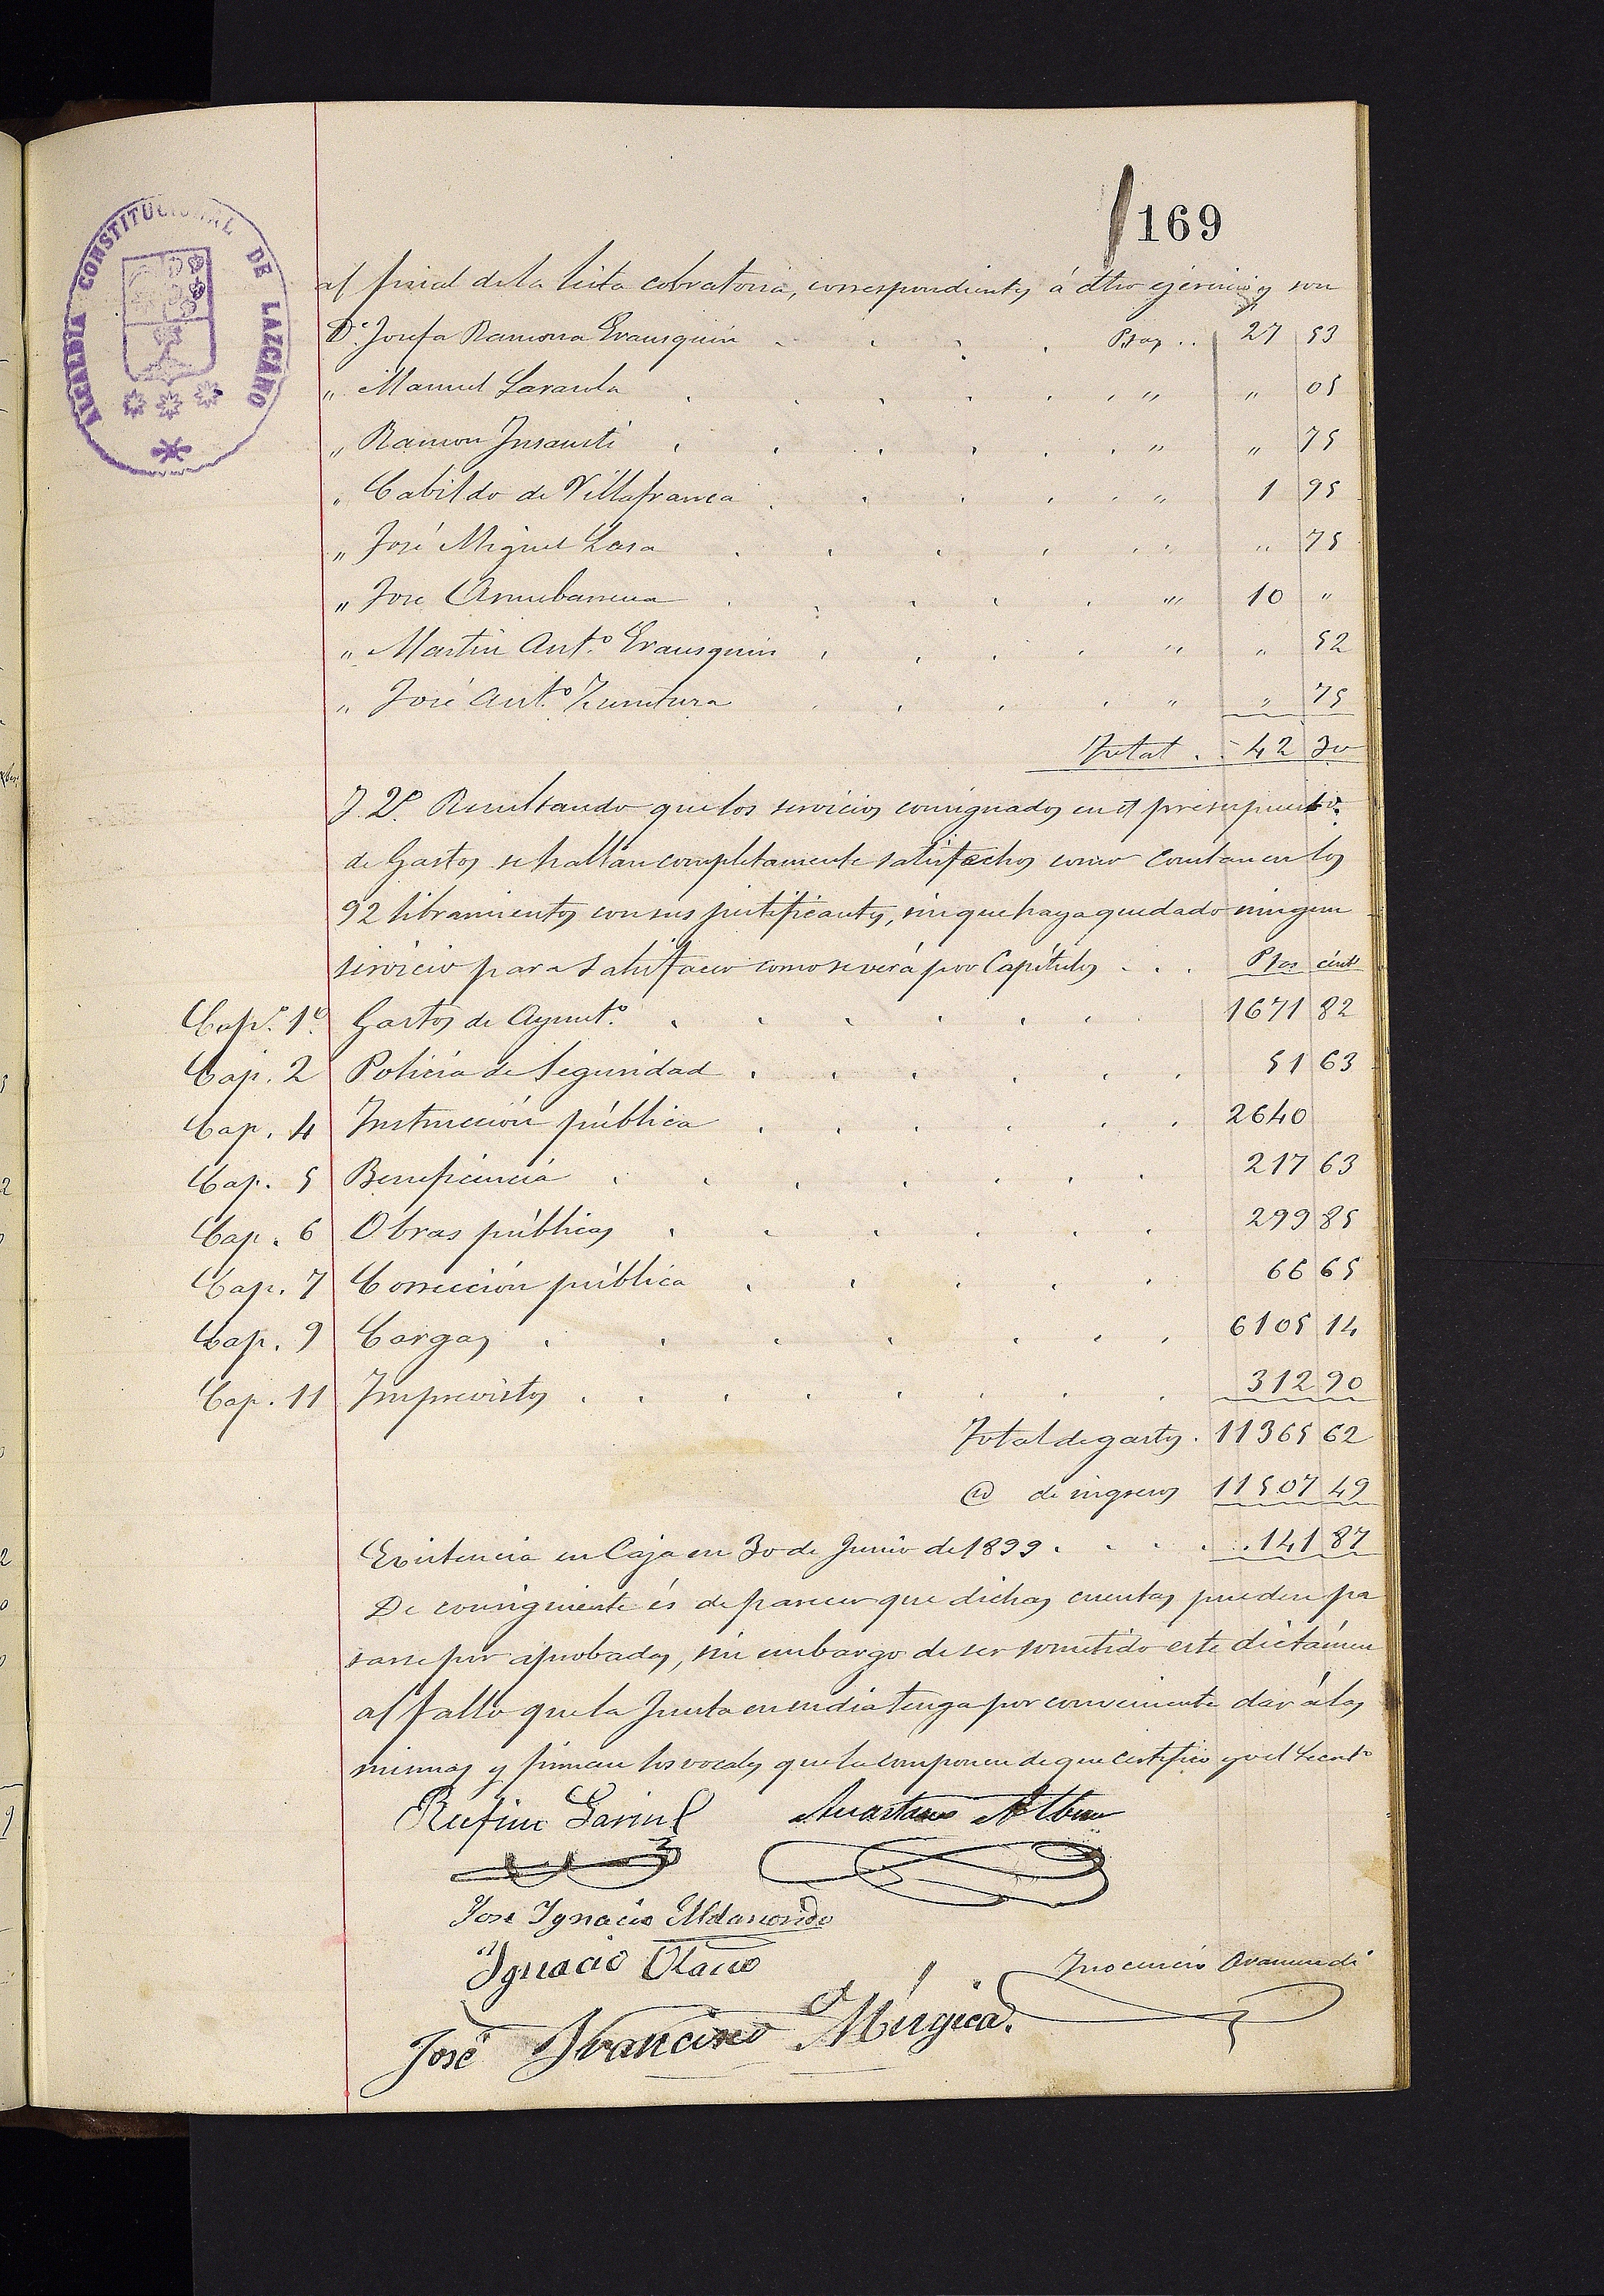 169
ALCALDIA CONSTITUCIONAL DE LAZCANO
al final de la lista cobratoria, correspondientes á dho ejercicio y son
Dª Josefa Ramona Erausquin . . . . Ptas .. 27 53
" Manuel Garaola . . . . . . " " 05
" Ramon Insausti . . . . . . " " 75
" Cabildo de Villafranca . . . . . " 1 95
" José Miguel Lasa . . . . . " " 75
" Jose Arrubarrena . . . . . " 10 "
" Martin Antº Erausquin . . . . " " 52
" José Antº Zurutuza . . . . " " 75
Total . . 42 30
Y 2º Resultando que los servicios consignados en el presupuesto
de Gastos se hallan completamente satisfechos como constan en los
92 libramientos con sus justificantes, sin que haya quedado ningun
servicio para satisfacer como se verá por Capítulos . . . Ptas cénts
Capº 1º Gastos de Ayuntº . . . . . . . 1671 82
Cap. 2 Policía de Seguridad . . . . . . 51 63
Cap. 4 Instrucción pública . . . . . . 2640
Cap. 5 Beneficencia . . . . . . . 217 63
Cap. 6 Obras públicas . . . . . . 299 85
Cap. 7 Corrección pública . . . . . 66 65
Cap. 9 Cargas . . . . . . . 6105 14
Cap. 11 Imprevistos . . . . . . . . 312 90
Total de gastos . 11365 62
@ de ingresos 11507 49
Existencia en Caja en 30 de Junio de 1899 . . . . . 141 87
De consiguiente és de parecer que dichas cuentas pueden pa
sarse por aprobadas, sin embargo de ser sometido este dictámen
al fallo que la Junta en en dia tenga por conveniente dar á las
mismas y firman los vocales que la componen de que certifico yo el Secretº
Rufino
José Ignacio Aldasoro
Ignacio Olano
Inocencio Aramendi
José Francisco Múgica.